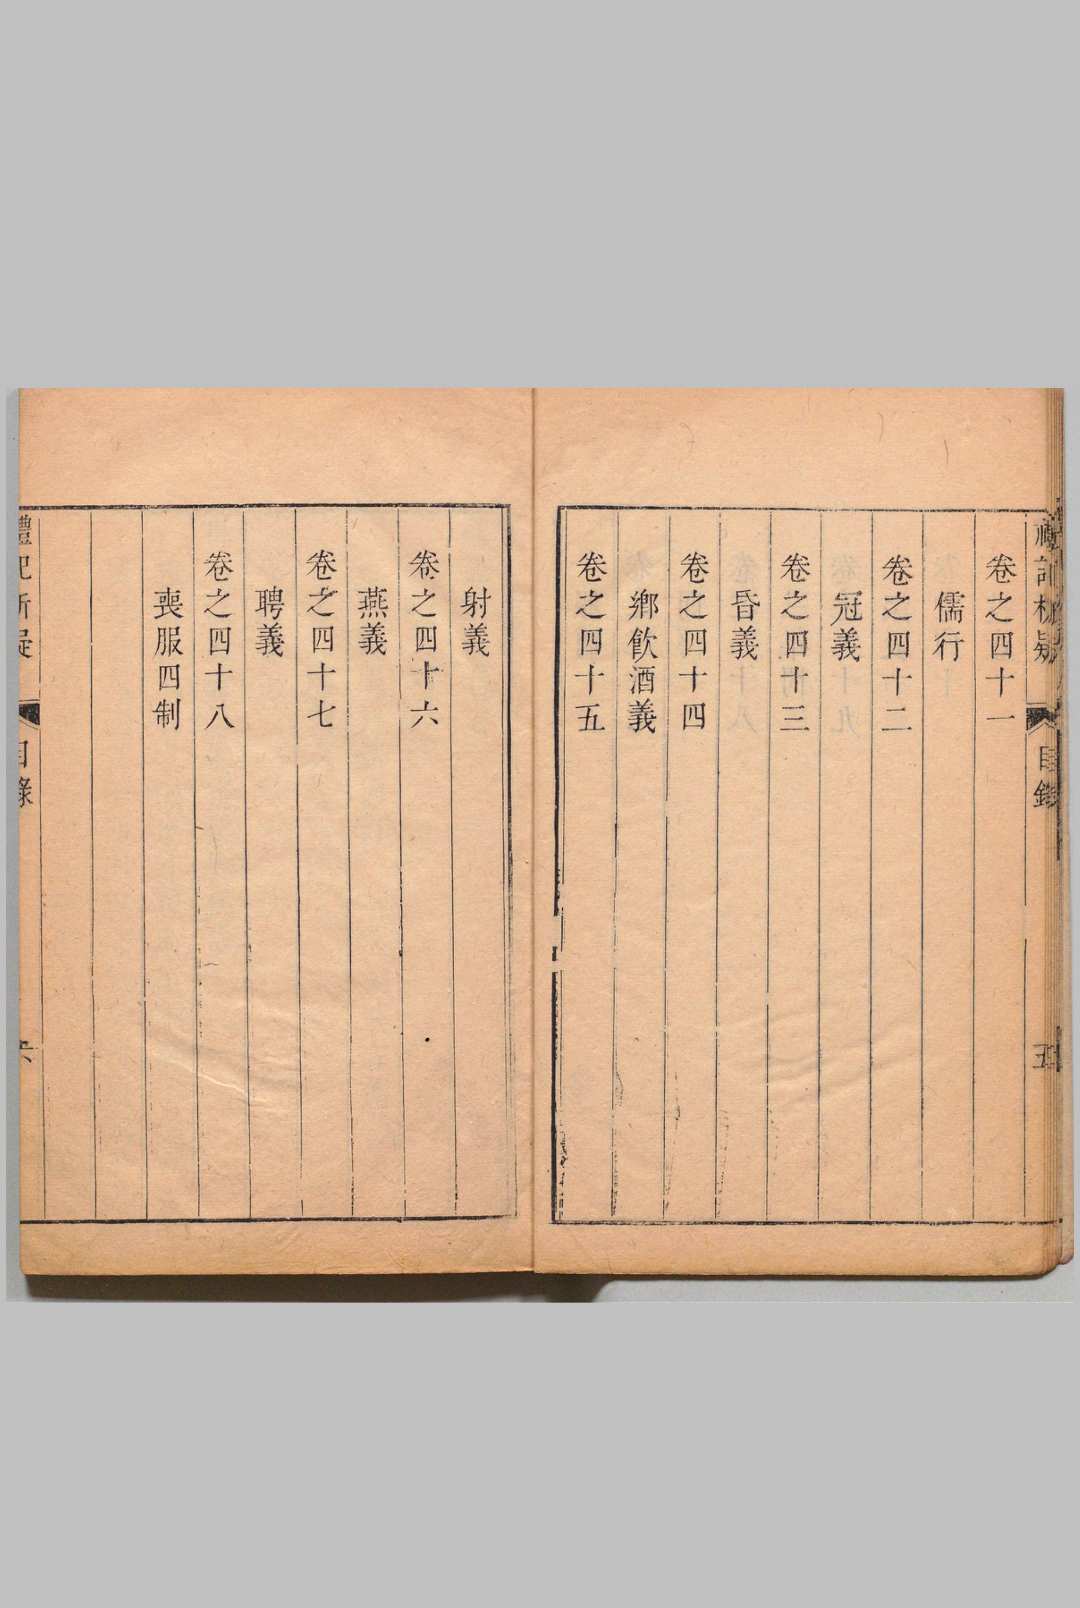 禮記析疑 目錄 五
卷之四十一
儒行
卷之四十二
冠義
卷之四十三
昏義
卷之四十四
鄉飲酒義
卷之四十五
射義
卷之四十六
燕義
卷之四十七
聘義
卷之四十八
喪服四制
禮記析疑 目錄 六